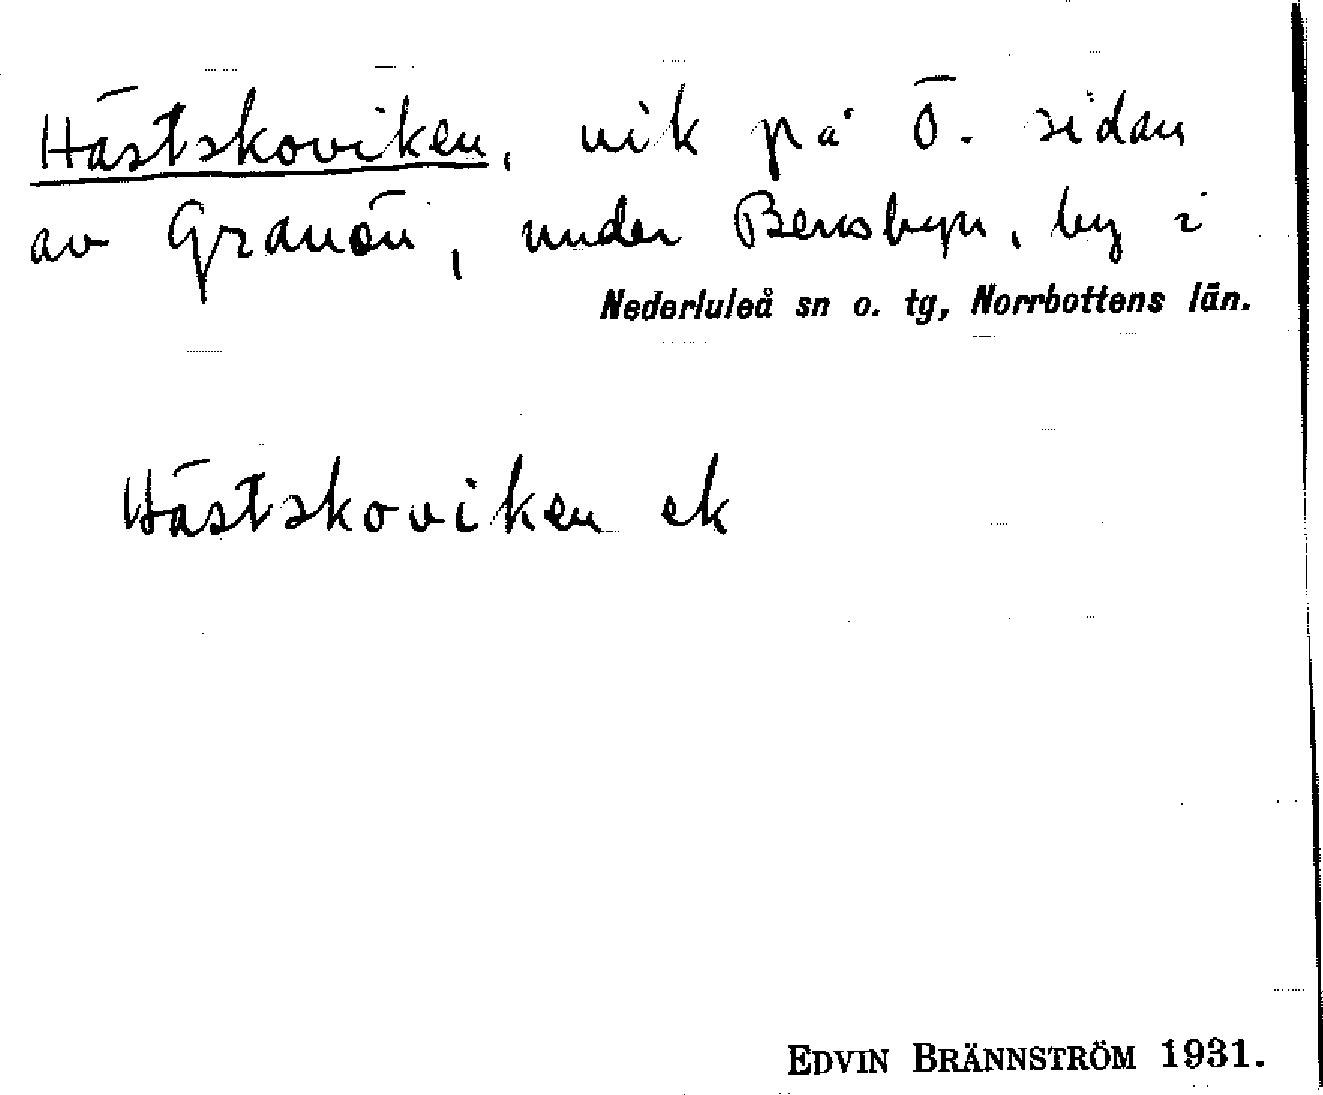 Hästskoviken, vik på Ö. sidan
av Granön, under Bensbyn, by i
Nederluleå sn o. tg, Norrbottens län.
Hästskoviken ek
EDVIN BRÄNNSTRÖM 1931.